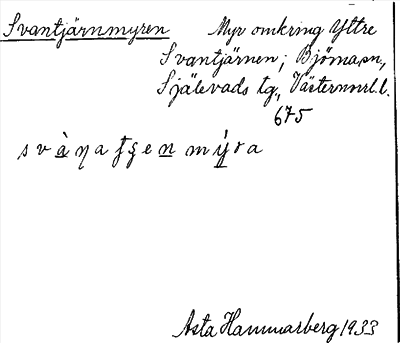 Svantjärnmyren Myr omkring Yttre
Svantjärnen; Björna sn,
Själevads tg., Västernorrl. l.
675
Asta Hammarberg 1933